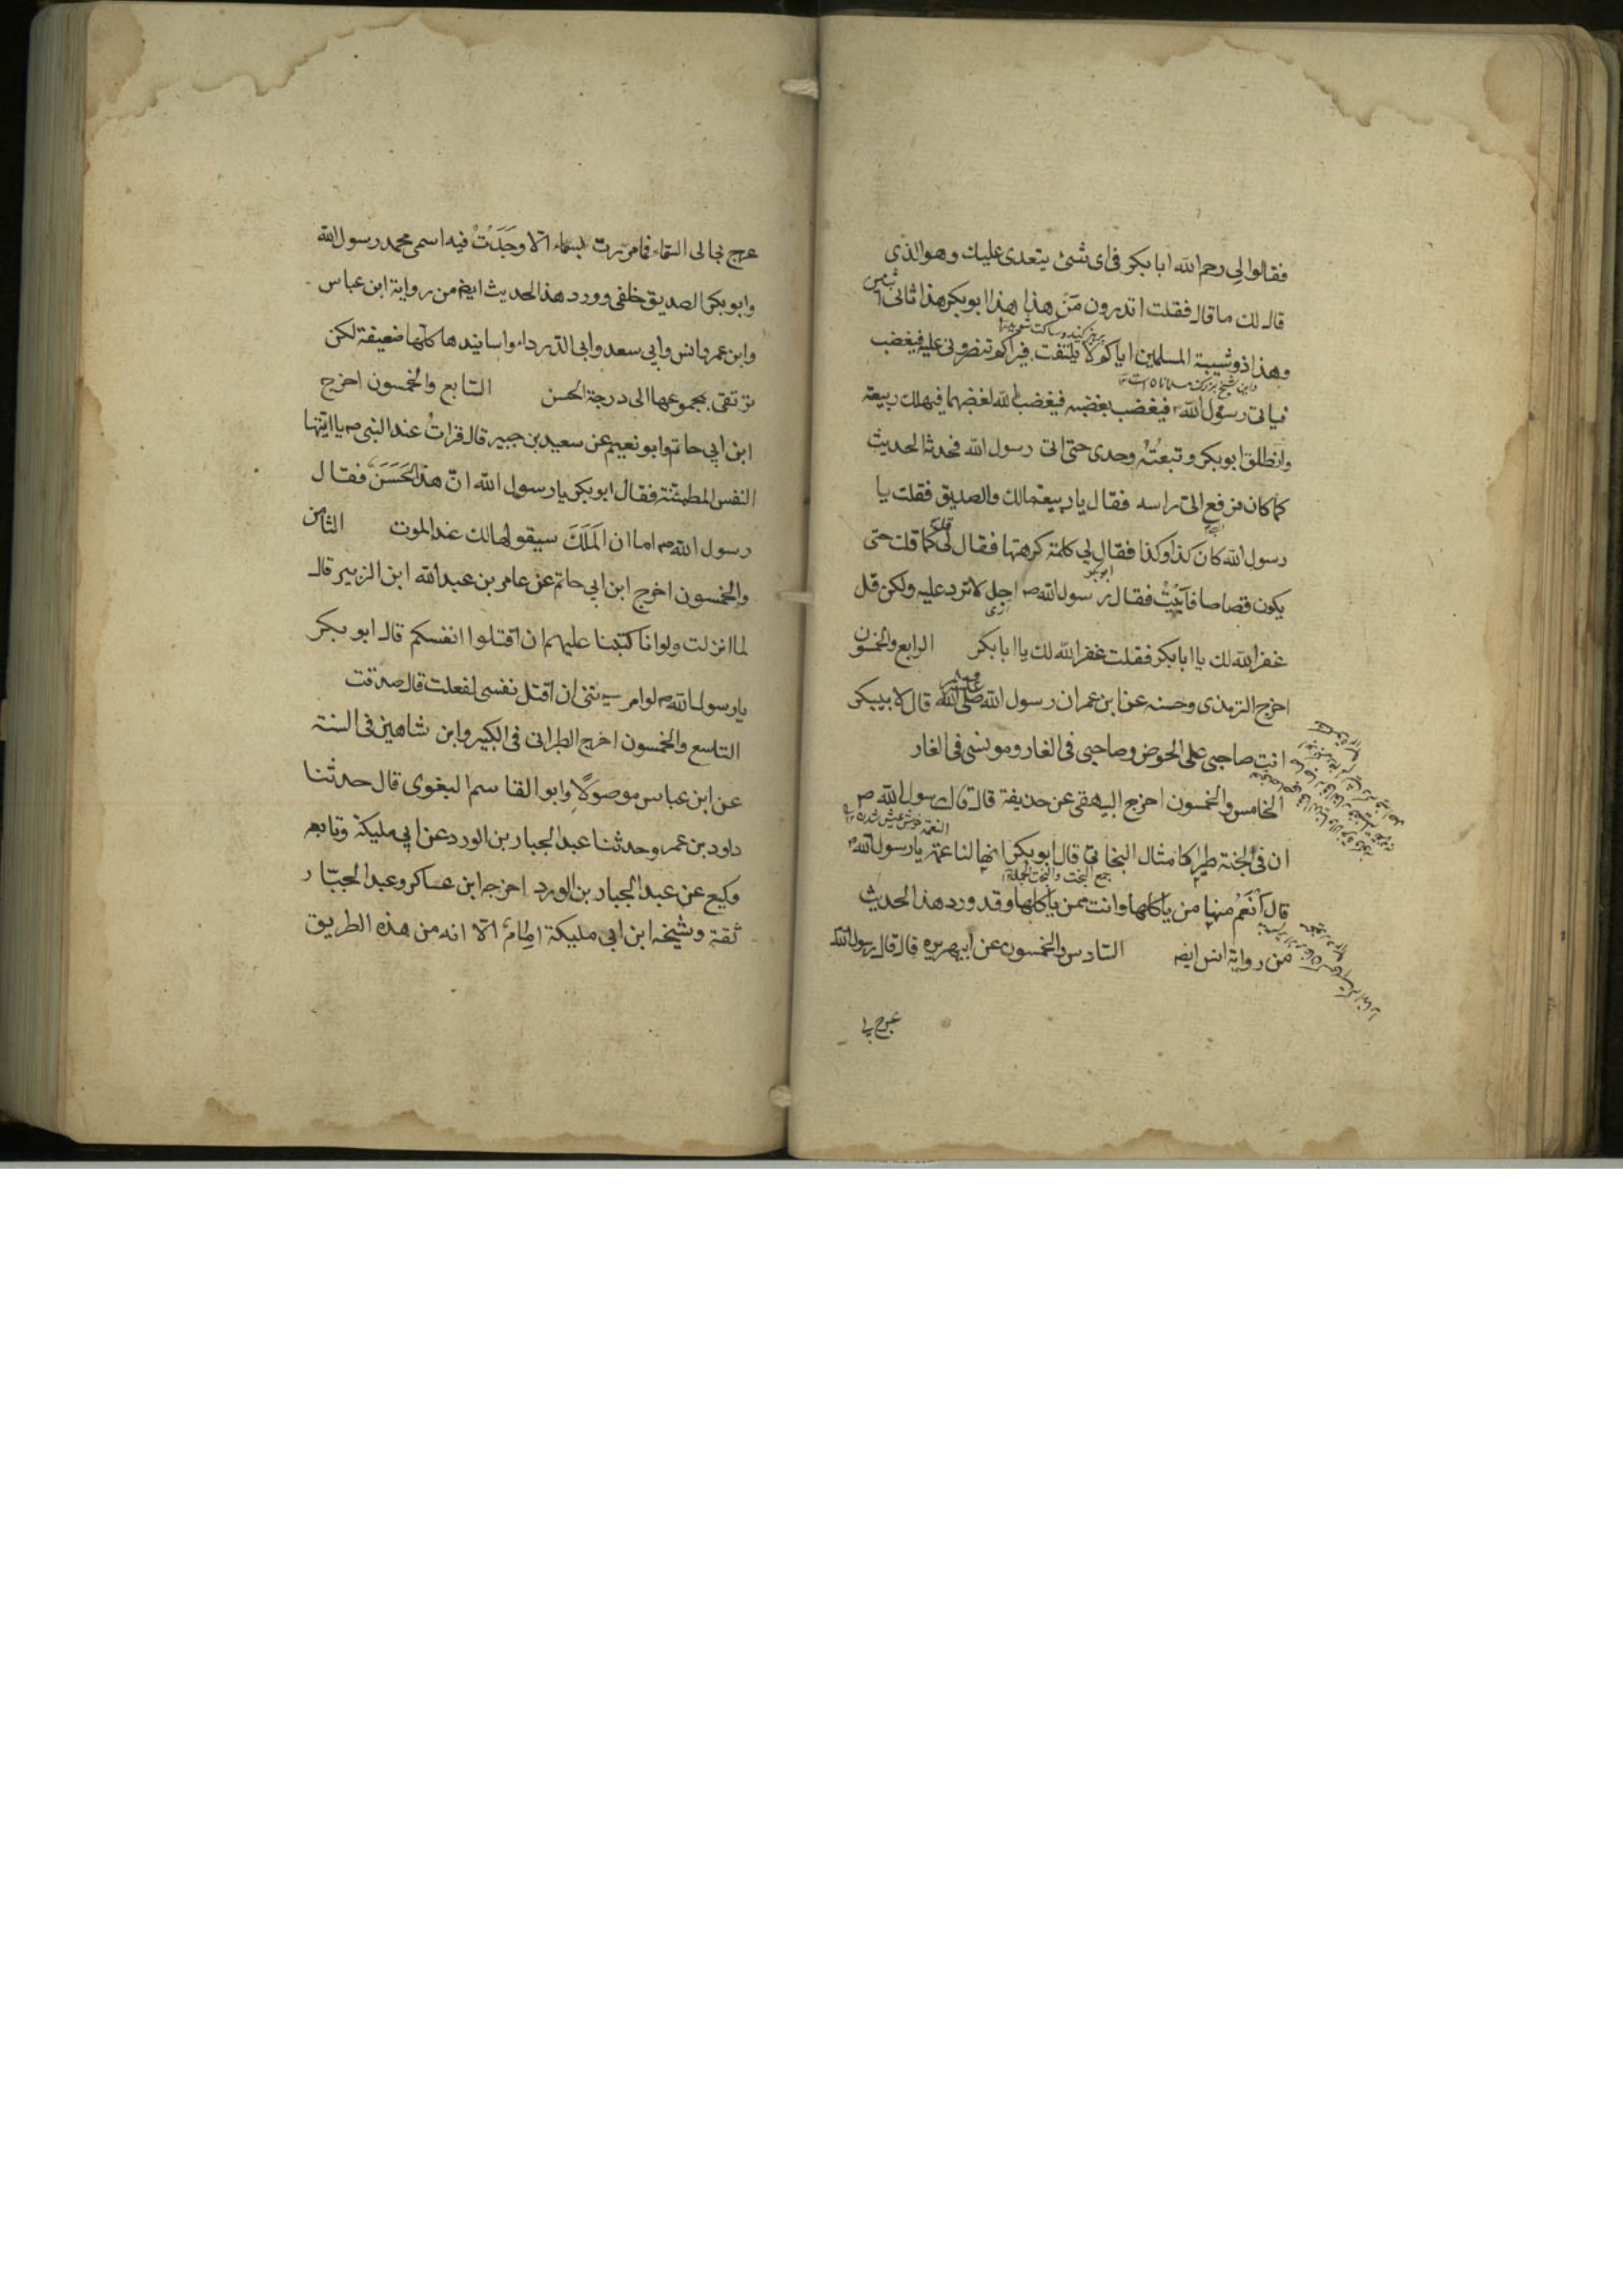 فقالوا لي رحم الله ابا بكر في اي شئ يتعدى عليك وهو الذي
قال لك ما قال فقلت اتدرون من هذا هذا ابو بكر هذا ثاني اثنين
وهذا ذو شيبة المسلمين اياكم لا يلتفت فيراكم تنصروني عليه فيغضب
فياتي رسول الله فيغضب بغضبه فيغضب الله لغضبهما فيهلك ربيعة
وانطلق ابو بكر وتبعته وحدي حتى اتى رسول الله فحدثه الحديث
كما كان فرفع الي راسه فقال يا ربيعة مالك والصديق فقلت يا
رسول الله كان كذا وكذا فقال لي كلمة كرهتها فقال لي كما قلت حتى
يكون قصاصا فابيت فقال رسول الله ص اجل لا ترد عليه ولكن قل
غفر الله لك يا ابا بكر فقلت غفر الله لك يا ابا بكر الرابع والخمسون
اخرج الترمذي وحسنه عن ابن عمر ان رسول الله صلى الله عليه وسلم قال لابي بكر
انت صاحبي على الحوض وصاحبي في الغار ومونسي في الغار
الخامس والخمسون اخرج البيهقي عن حذيفة قال قال رسول الله ص
ان في الجنة طيرا كامثال البخاتي قال ابو بكر انها لناعمة يا رسول الله
جمع البخت
قال انعم منها من ياكلها وانت ممن ياكلها وقد ورد هذا الحديث
من رواية انس ايضه السادس والخمسون عن ابي هريره قال قال رسول الله
عرج بي
عرج بي الى السماء فما مررت بسماء الا وجدت فيه اسمي محمد رسول الله
وابو بكر الصديق خلفي وورد هذا الحديث ايضه من رواية ابن عباس
وابن عمر وانس وابي سعد وابي الدرداء واسانيدها كلها ضعيفة لكن
ترتقي بمجموعها الى درجة الحسن السابع والخمسون اخرج
ابن ابي حاتم وابو نعيم عن سعيد بن جبير قال قرات عند النبي ص يا ايتها
النفس المطمئنة فقال ابو بكر يا رسول الله ان هذا لحسن فقال
رسول الله ص اما ان الملك سيقولها لك عند الموت الثامن
والخمسون اخرج ابن ابي حاتم عن عامر بن عبد الله ابن الزبير قال
لما انزلت ولو انا كتبنا عليهم ان اقتلوا انفسكم قال ابو بكر
يا رسول الله ص لو امرتني ان اقتل نفسي لفعلت قال صدقت
التاسع والخمسون اخرج الطبراني في الكبير وابن شاهين في السنة
عن ابن عباس موصولا وابو القاسم البغوي قال حدثنا
داود بن عمر وحدثنا عبد الجبار بن الورد عن ابي مليكة وتابعه
وكيع عن عبد الجبار بن الورد اخرجه ابن عساكر وعبد الجبار
ثقة وشيخه ابن ابي مليكة امام الا انه من هذه الطريق